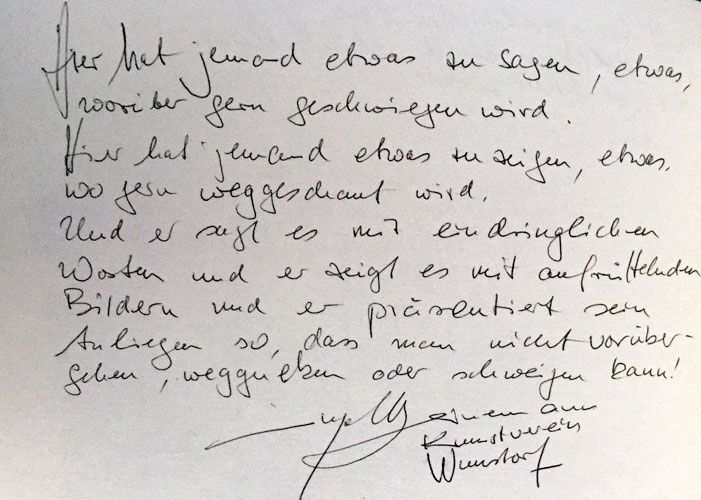 Hier hat jemand etwas zu sagen, etwas,
worüber gern geschwiegen wird.
Hier hat jemand etwas zu zeigen, etwas,
wo gern weggeschaut wird.
Und er sagt es mit eindringlichen
Worten und er zeigt es mit aufrüttelnden
Bildern und er präsentiert sein
Anliegen so, dass man nicht vorüber-
gehen, weggucken oder schweigen kann!
Kunstverein
Wunstorf